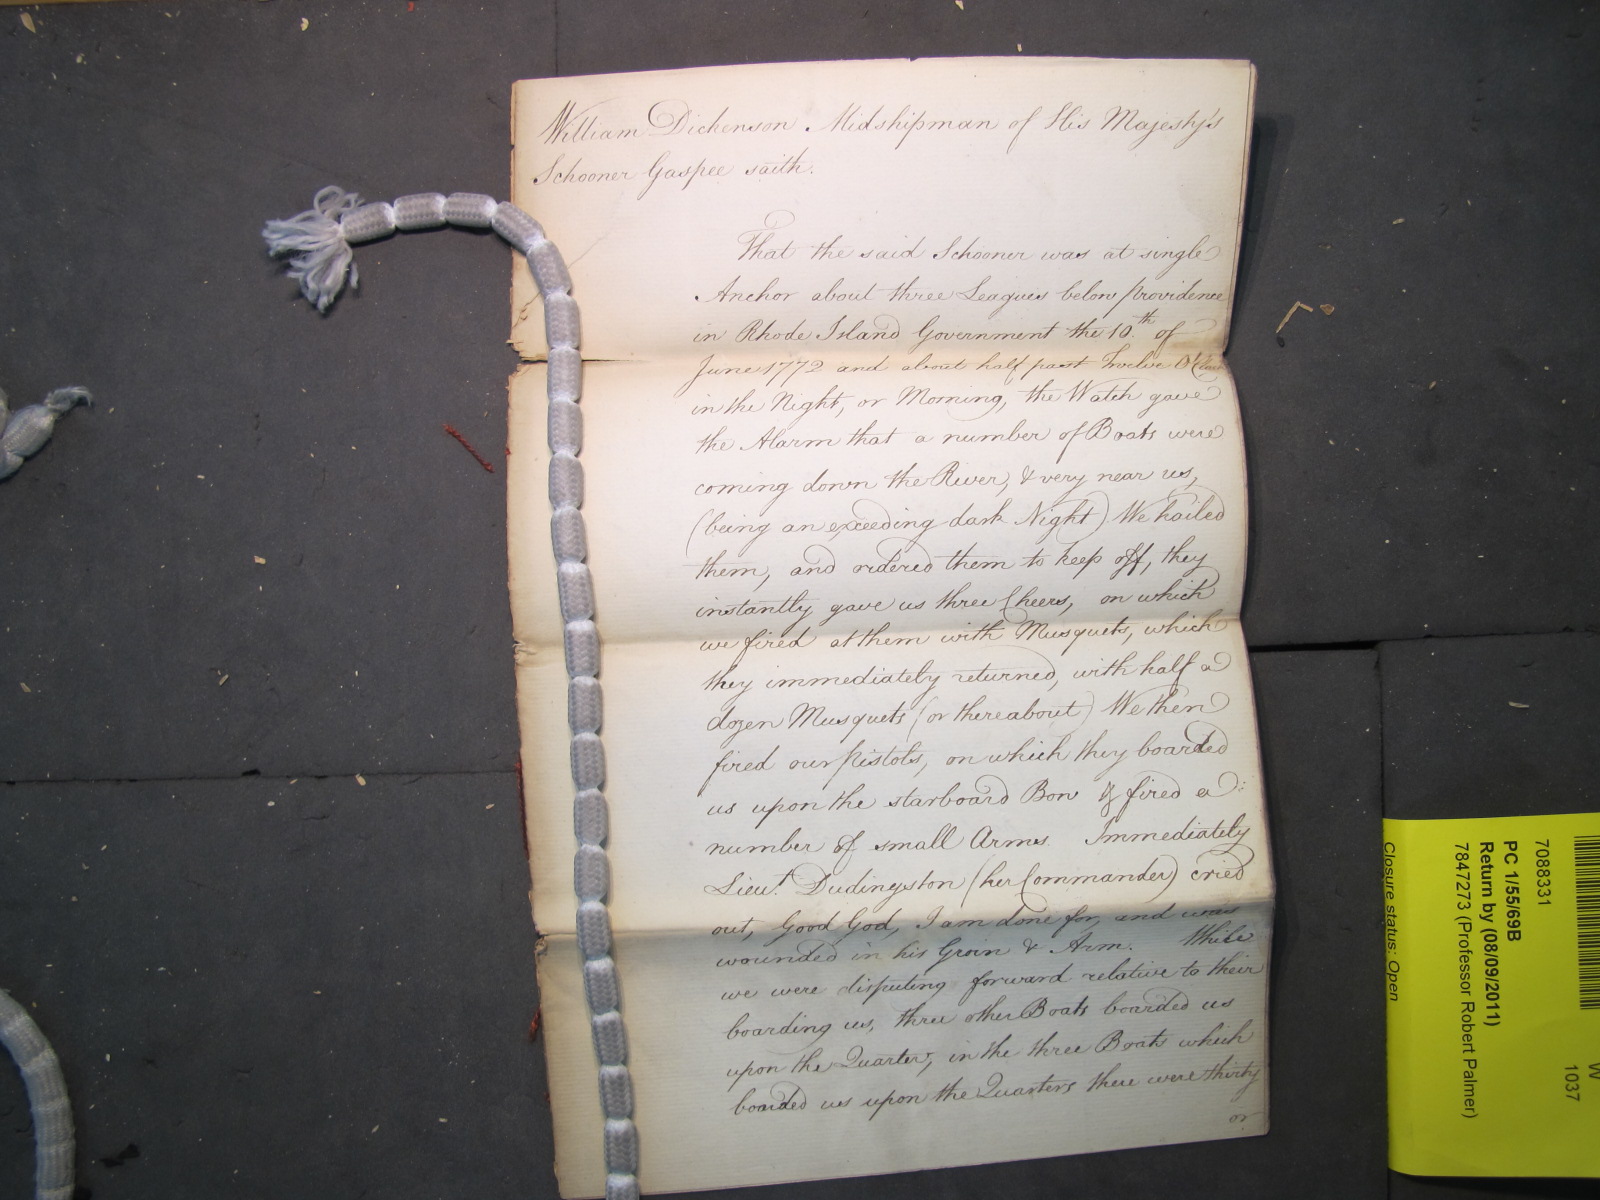 William Dickenson. Midshipman of His Majesty's
Schooner Gaspee saith.
That the said Schooner was at single
Anchor about three Leagues below providence
in Rhode Island Government the 10.th of
June 1772 and about half past Twelve O'Clock
in the Night, or Morning, the Watch gave
the Alarm that a number of Boats were
coming down the River, & very near us,
(being an exceeding dark Night) We hailed
them, and ordered them to keep off, they
instantly gave us three Cheers, on which
we fired at them with Musquets, which
they immediately returned, with half a
dozen Musquets (or thereabout) We then
fired our Pistols, on which they boarded
us upon the starboard Bow & fired a
number of small Arms. Immediately
Lieut. Dudingston (her Commander) cried
out, Good God, I am done for, and was
wounded in his Groin & Arm. While
we were disputing forward relative to their
boarding us, three other Boats boarded us
upon the Quarter, in the three Boats which
boarded us upon the Quarters there were thirty
or
7088331
PC 1/55/69B
Return by (08/09/2011)
7847273 (Professor Robert Palmer)
Closure status: Open
W
1037